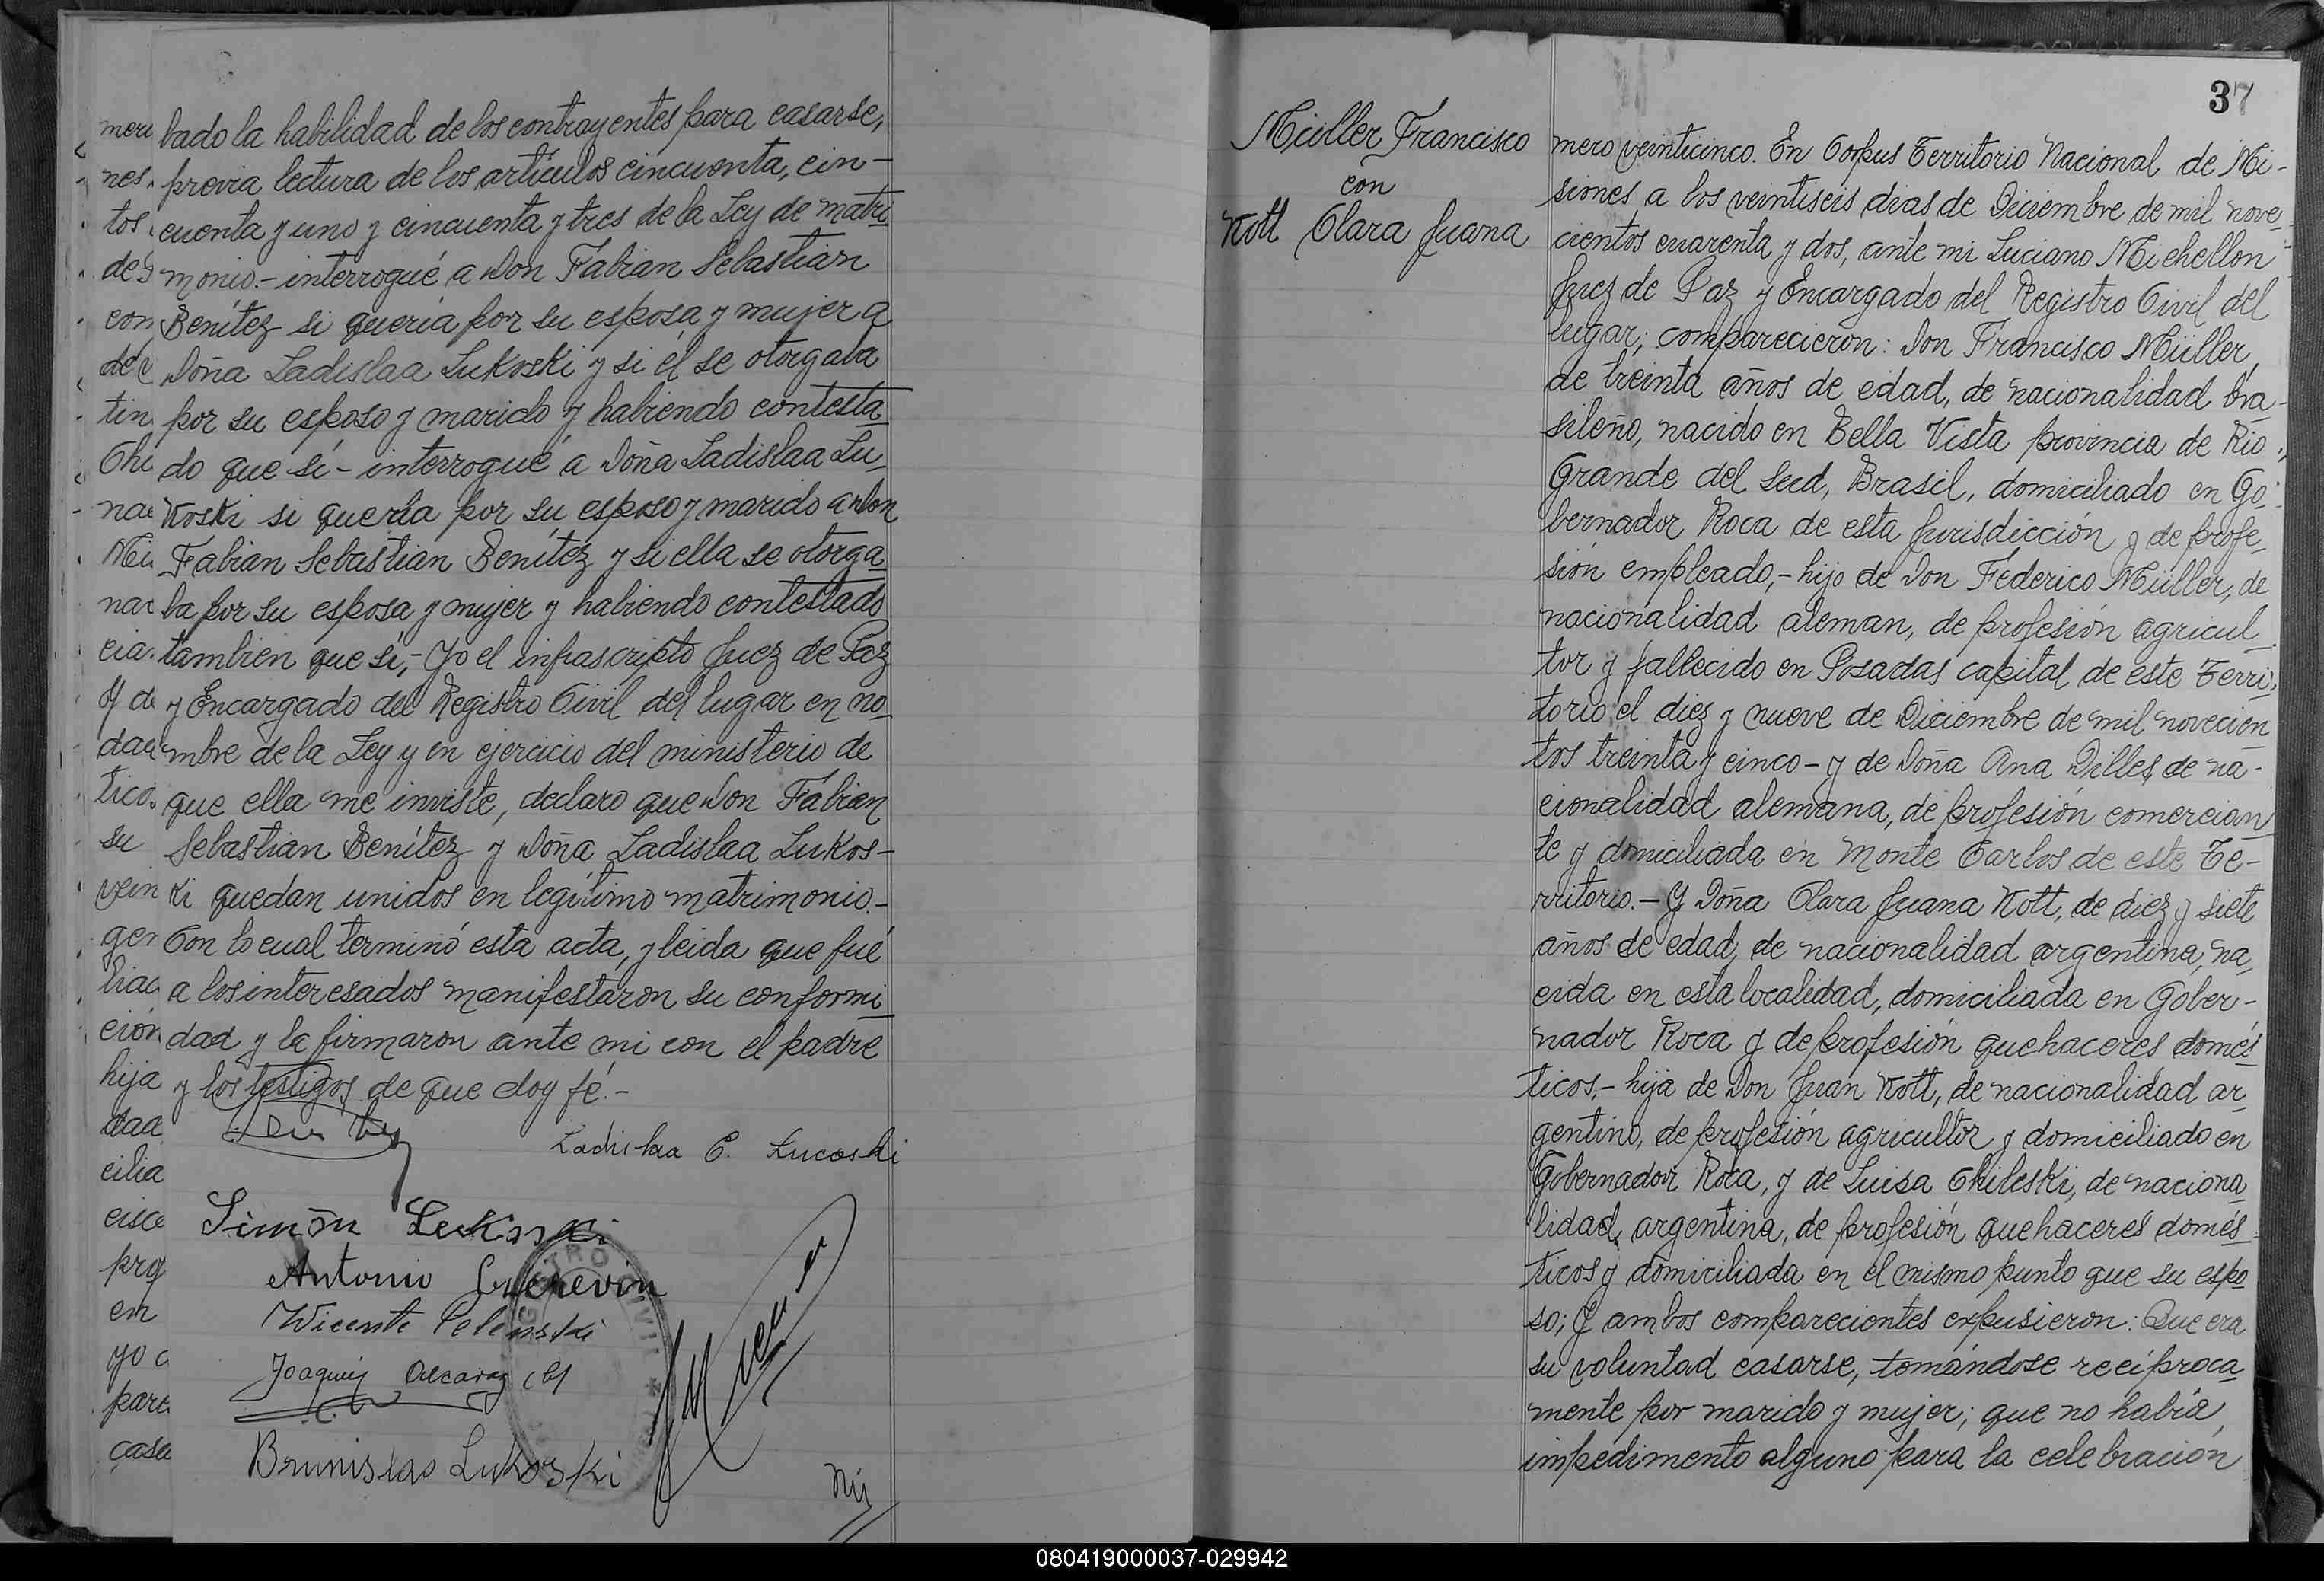 bado la habilidad de los contrayentes para casarse,
previa lectura de los artículos cincuenta, cin-
cuenta y uno y cincuenta y tres de la Ley de matri
monio.- interrogué a Don Fabian Sebastian
Benítez si quería por su esposa y mujer a
Doña Ladislaa Lukoski y si él se otorgaba
por su esposo y marido y habiendo contesta
do que sí - interrogué a Doña Ladislaa Lu
Koski si quería por su esposo y marido a Don
Fabian Sebastian Benítez y si ella se otorga
ba por su esposa y mujer y habiendo contestado
tambien que sí,- Yo el infrascripto Juez de Paz
y Encargado del Registro Civil del lugar en no
mbre de la Ley y en ejercicio del ministerio de
que ella me inviste, declaro que Don Fabian
Sebastian Benítez y Doña Ladislaa Lukos-
ki quedan unidos en legítimo matrimonio.-
Con lo cual terminó esta acta, y leida que fué
a los interesados manifestaron su conformi
dad y la firmaron ante mi con el padre
y los testigos de que doy fé.-
Ladislaa C. Lucoski
Simón Lukoski
Antonio
Wicente Pelinski
Joaquin Alcaraz (h)
Brunislao Lukoski
mere
nes.
tos
de
con
de
tin
Chi
nac
Mi
nac
cia
y de
dad
tico.
su
vein
gen
liad
ción
hija
dad
cilia
cisco
prof
en
yo
pare
casa
37
Müller Francisco
con
Kott Clara Juana
mero veinticinco. En Corpus Territorio Nacional de Mi-
siones a los veintiseis dias de Diciembre de mil nove
cientos cuarenta y dos, ante mi Luciano Michellon
Juez de Paz y Encargado del Registro Civil del
lugar; comparecieron: Don Francisco Müller,
de treinta años de edad, de nacionalidad bra-
sileño, nacido en Bella Vista provincia de Rio
Grande del Sud, Brasil, domiciliado en Go-
bernador Roca de esta Jurisdicción y de profe-
sión empleado,- hijo de Don Federico Müller, de
nacionalidad aleman, de profesión agricul
tor y fallecido en Posadas capital de este Terri-
torio el diez y nueve de Diciembre de mil novecien
tos treinta y cinco - y de Doña Ana Dilles de na-
cionalidad alemana, de profesión comercian
te y domiciliada en Monte Carlos de este Te-
rritorio.- Y Doña Clara Juana Kott, de diez y siete
años de edad, de nacionalidad argentina, na
cida en esta localidad, domiciliada en Gober-
nador Roca y de profesión quehaceres domés
ticos,- hija de Don Juan Kott, de nacionalidad ar
gentino, de profesión agricultor y domiciliado en
Gobernador Roca, y de Luisa Chileski, de naciona
lidad argentina, de profesión quehaceres domés
ticos y domiciliada en el mismo punto que su espo
so; Y ambos comparecientes expusieron: Que era
su voluntad casarse, tomándose recíproca
mente por marido y mujer; que no había
impedimento alguno para la celebración
080419000037-029942